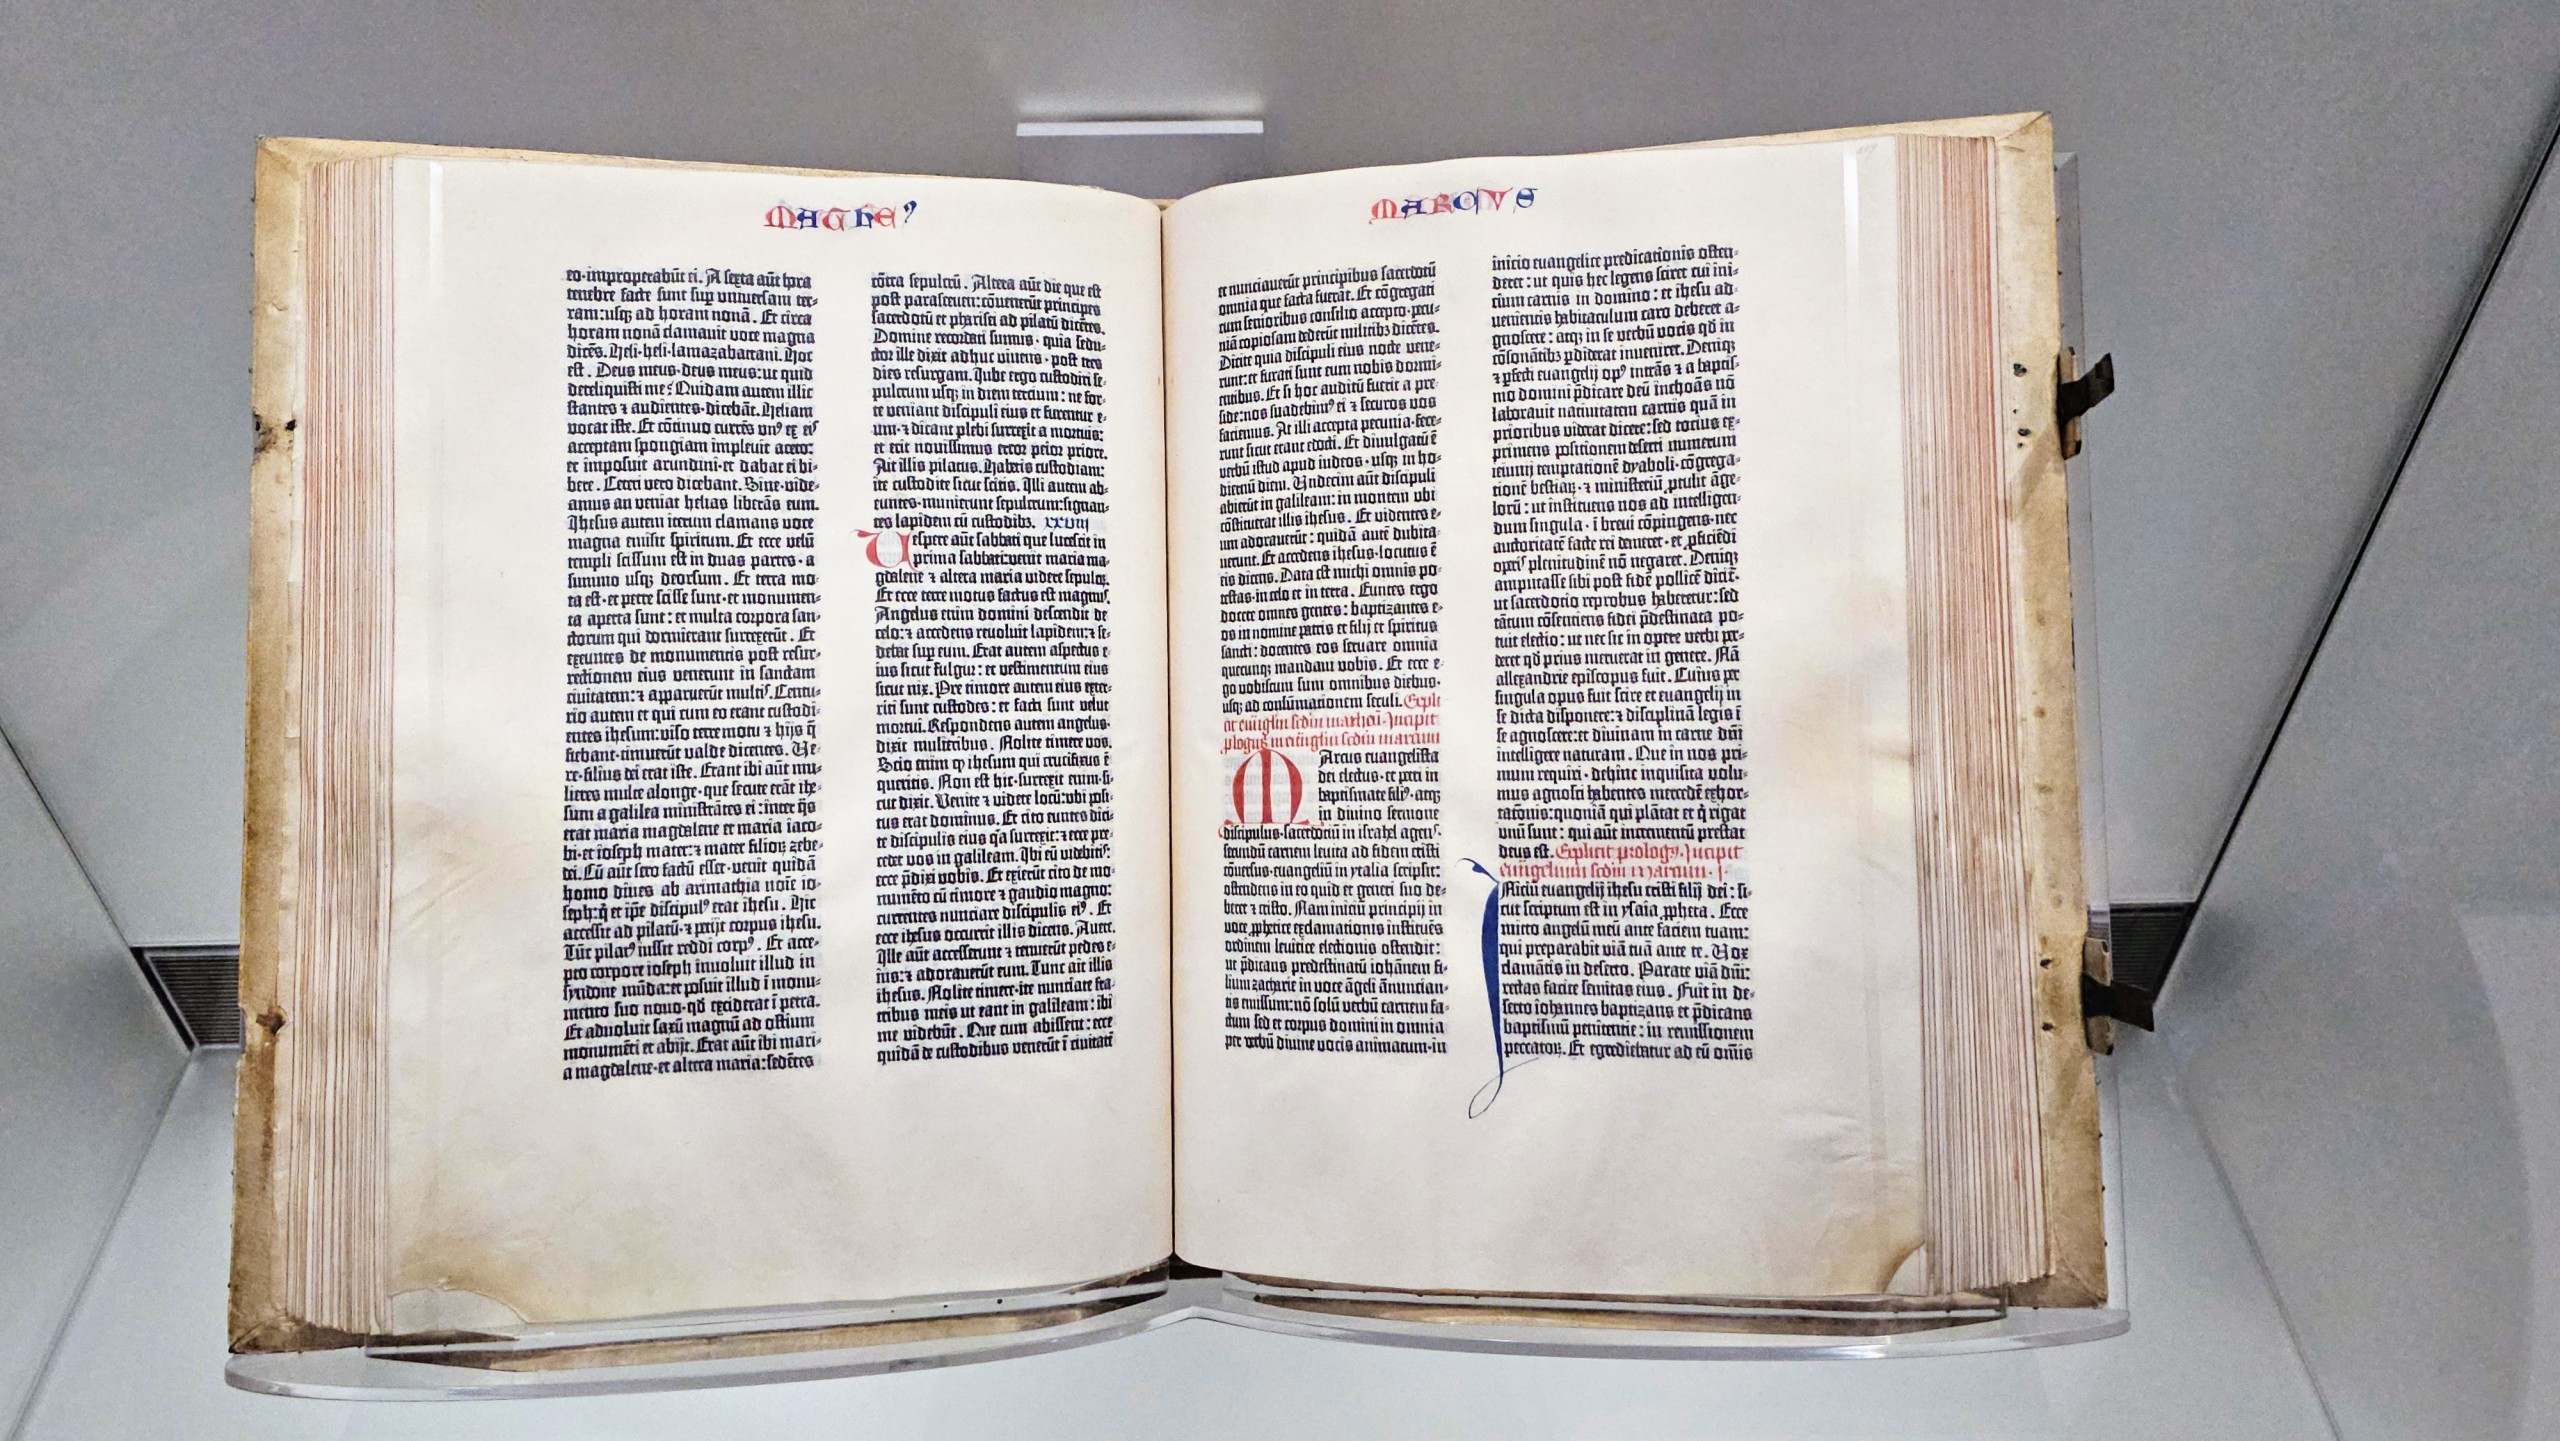 MATHEꝰ
eo·improperabūt ei. A sexta aūt hora
tenebre facte sunt sup universam ter-
ram: usqꝫ ad horam nonā. Et circa
horam nonā clamauit voce magna
dicēs. Heli·heli·lamazabattani. Hoc
est. Deus meus·deus meus: ut quid
dereliquisti me? Quidam autem illic
stantes ⁊ audientes·dicebāt. Heliam
vocat iste. Et cōtinuo currēs unꝰ ex eis
acceptam spongiam impleuit aceto:
et imposuit arundini·et dabat ei bi-
bere. Ceteri vero dicebant. Sine·vide-
amus an veniat helias liberās eum.
Ihesus autem iterum clamans voce
magna emisit spiritum. Et ecce velū
templi scissum est in duas partes·a
summo usqꝫ deorsum. Et terra mo-
ta est·et petre scisse sunt·et monumen-
ta aperta sunt: et multa corpora san-
ctorum qui dormierant surrexerūt. Et
exeuntes de monumentis post resur-
rectionem eius venerunt in sanctam
ciuitatem: ⁊ apparuerūt multis. Centu-
rio autem et qui cum eo erant custodi-
entes ihesum: viso terre motu ⁊ hijs q̄
fiebant·timuerūt valde dicentes. Ve-
re·filius dei erat iste. Erant ibi aūt mu-
lieres multe alonge·que secute erāt ihe-
sum a galilea ministrātes ei: inter q̄s
erat maria magdalene et maria iaco-
bi·et ioseph mater: ⁊ mater filioꝝ zebe-
dei. Cū aūt sero factū esset·venit quidā
homo diues ab arimathia noīe io-
seph: q̇ et ip̄e discipulꝰ erat ihesu. Hic
accessit ad pilatū·⁊ petijt corpus ihesu.
Tūc pilatꝰ iussit reddi corpꝰ. Et acce-
pto corpore ioseph inuoluit illud in
syndone mūda: et posuit illud ī monu-
mento suo nouo·qđ exciderat ī petra.
Et aduoluit saxū magnū ad ostium
monumēti et abijt. Erat aūt ibi mari-
a magdalene·et altera maria: sedētes
cōtra sepulcrū. Altera aūt die que est
post parasceuen: cōuenerūt principes
sacerdotū et pharisei ad pilatū dicētes.
Domine recordati sumus·quia sedu-
ctor ille dixit adhuc viuens·post tres
dies resurgam. Iube ergo custodiri se-
pulcrum usqꝫ in diem tercium: ne for-
te veniant discipuli eius et furentur e-
um·⁊ dicant plebi surrexit a mortuis:
et erit nouissimus error peior priore.
Ait illis pilatus. Habetis custodiam:
ite custodite sicut scitis. Illi autem ab-
euntes·munierunt sepulcrum: signan-
tes lapidem cū custodibꝫ. xxviii
Vespere aūt sabbati que lucescit in
prima sabbati: venit maria ma-
gdalene ⁊ altera maria videre sepulcꝝ.
Et ecce terre motus factus est magnus.
Angelus enim domini descendit de
celo: ⁊ accedens reuoluit lapidem: ⁊ se-
debat sup eum. Erat autem aspectus e-
ius sicut fulgur: et vestimentum eius
sicut nix. Pre timore autem eius exter-
riti sunt custodes: et facti sunt velut
mortui. Respondens autem angelus·
dixit mulieribus. Nolite timere vos.
Scio enim ꝙ ihesum qui crucifixus ē
queritis. Non est hic·surrexit enim·si-
cut dixit. Venite ⁊ videte locū: ubi posi-
tus erat dominus. Et cito euntes dici-
te discipulis eius q̄a surrexit: ⁊ ecce pre-
cedet vos in galileam. Ibi eū videbitis:
ecce p̄dixi vobis. Et exierūt cito de mo-
numēto cū timore ⁊ gaudio magno:
currentes nunciare discipulis eiꝰ. Et
ecce ihesus occurrit illis dicens. Auete.
Ille aūt accesserunt ⁊ tenuerūt pedes e-
ius: ⁊ adorauerūt eum. Tunc ait illis
ihesus. Nolite timere·ite nunciate fra-
tribus meis ut eant in galileam: ibi
me videbūt. Que cum abissent: ecce
quidā de custodibus venerūt ī ciuitatē
MARCVS
et nunciauerūt principibus sacerdotū
omnia que facta fuerāt. Et cōgregati
cum senioribus consilio accepto·pecu-
niā copiosam dederūt militibꝫ dicētes.
Dicite quia discipuli eius nocte vene-
runt: et furati sunt eum nobis dormi-
entibus. Et si hoc auditū fuerit a pre-
side: nos suadebimꝰ ei ⁊ securos vos
faciemus. At illi accepta pecunia·fece-
runt sicut erant edocti. Et diuulgatū ē
verbū istud apud iudeos·usqꝫ in ho-
diernū diem. Undecim aūt discipuli
abierūt in galileam: in montem ubi
cōstituerat illis ihesus. Et videntes e-
um adorauerūt: quidā autē dubita-
uerunt. Et accedens ihesus·locutus ē
eis dicens. Data est michi omnis po-
testas·in celo et in terra. Euntes ergo
docete omnes gentes: baptizantes e-
os in nomine patris et filij et spiritus
sancti: docentes eos seruare omnia
quecunqꝫ mandaui vobis. Et ecce e-
go vobiscum sum omnibus diebus·
usqꝫ ad consūmationem seculi. Expli
cit euāgliū scdm matheū·Incipit
plogus in euāgliū scdm marcum
Marcus euangelista
dei electus·et petri in
baptismate filiꝰ·atqꝫ
in diuino sermone
discipulus·sacerdotiū in israhel agens·
secundū carnem leuita ad fidem cristi
cōuersus·euangeliū in ytalia scripsit:
ostendens in eo quid et generi suo de-
beret ⁊ cristo. Nam iniciū principij in
voce ꝓphetice exclamationis instituēs
ordinem leuitice electionis ostendit:
ut p̄dicans predestinatū iohānem fi-
lium zacharie in voce āgeli ānuncian-
tis emissum: nō solū verbū carnem fa-
ctum sed et corpus domini in omnia
per verbū diuine vocis animatum·in
inicio euangelice predicationis osten-
deret: ut quis hec legens sciret cui ini-
cium carnis in domino: et ihesu ad-
uenientis habitaculum caro deberet a-
gnoscere: atqꝫ in se verbū vocis qđ in
cōsonātibꝫ ꝑdiderat inueniret. Deniqꝫ
⁊ ꝑfecti euangelij opꝰ intrās ⁊ a baptis-
mo domini p̄dicare deū inchoās nō
laborauit natiuitatem carnis quā in
prioribus viderat dicere: sed totius ex-
primens positionem deserti numerum
ieiunij temptationē dyaboli·cōgrega-
tionē bestiaꝝ·⁊ ministeriū ꝓtulit āge-
lorū: ut instituens nos ad intelligen-
dum singula·ī breui cōpingens·nec
auctoritatē facte rei demeret·et ꝓficiēdi
operis plenitudinē nō negaret. Deniqꝫ
amputasse sibi post fidē pollicē dicit·
ut sacerdotio reprobus haberetur: sed
tātum cōsentiens fidei p̄destinata po-
tuit electio: ut nec sic in opere verbi per-
deret qđ prius meruerat in genere. Nā
allexandrie episcopus fuit. Cuius per
singula opus fuit scire et euangelij in
se dicta disponere: ⁊ disciplinā legis ī
se agnoscere: et diuinam in carne dn̄i
intelligere naturam. Que in nos pri-
mum requiri·dehinc inquisita volu-
mus agnosci habentes mercedē exhor-
tatōnis: quoniā qui plātat et q̇ rigat
unū sunt: qui aūt incrementū prestat
deus est. Explicit prologꝰ. Incipit
euāgelium scdm Marcum·I·
Iniciū euangelij ihesu cristi filij dei: si-
cut scriptum est in ysaia ꝓpheta. Ecce
mitto angelū meū ante faciem tuam:
qui preparabit viā tuā ante te. Vox
clamātis in deserto. Parate viā dn̄i:
rectas facite semitas eius. Fuit in de-
serto iohannes baptizans et p̄dicans
baptismū penitentie: in remissionem
peccatoꝝ. Et egrediebatur ad eū om̄is